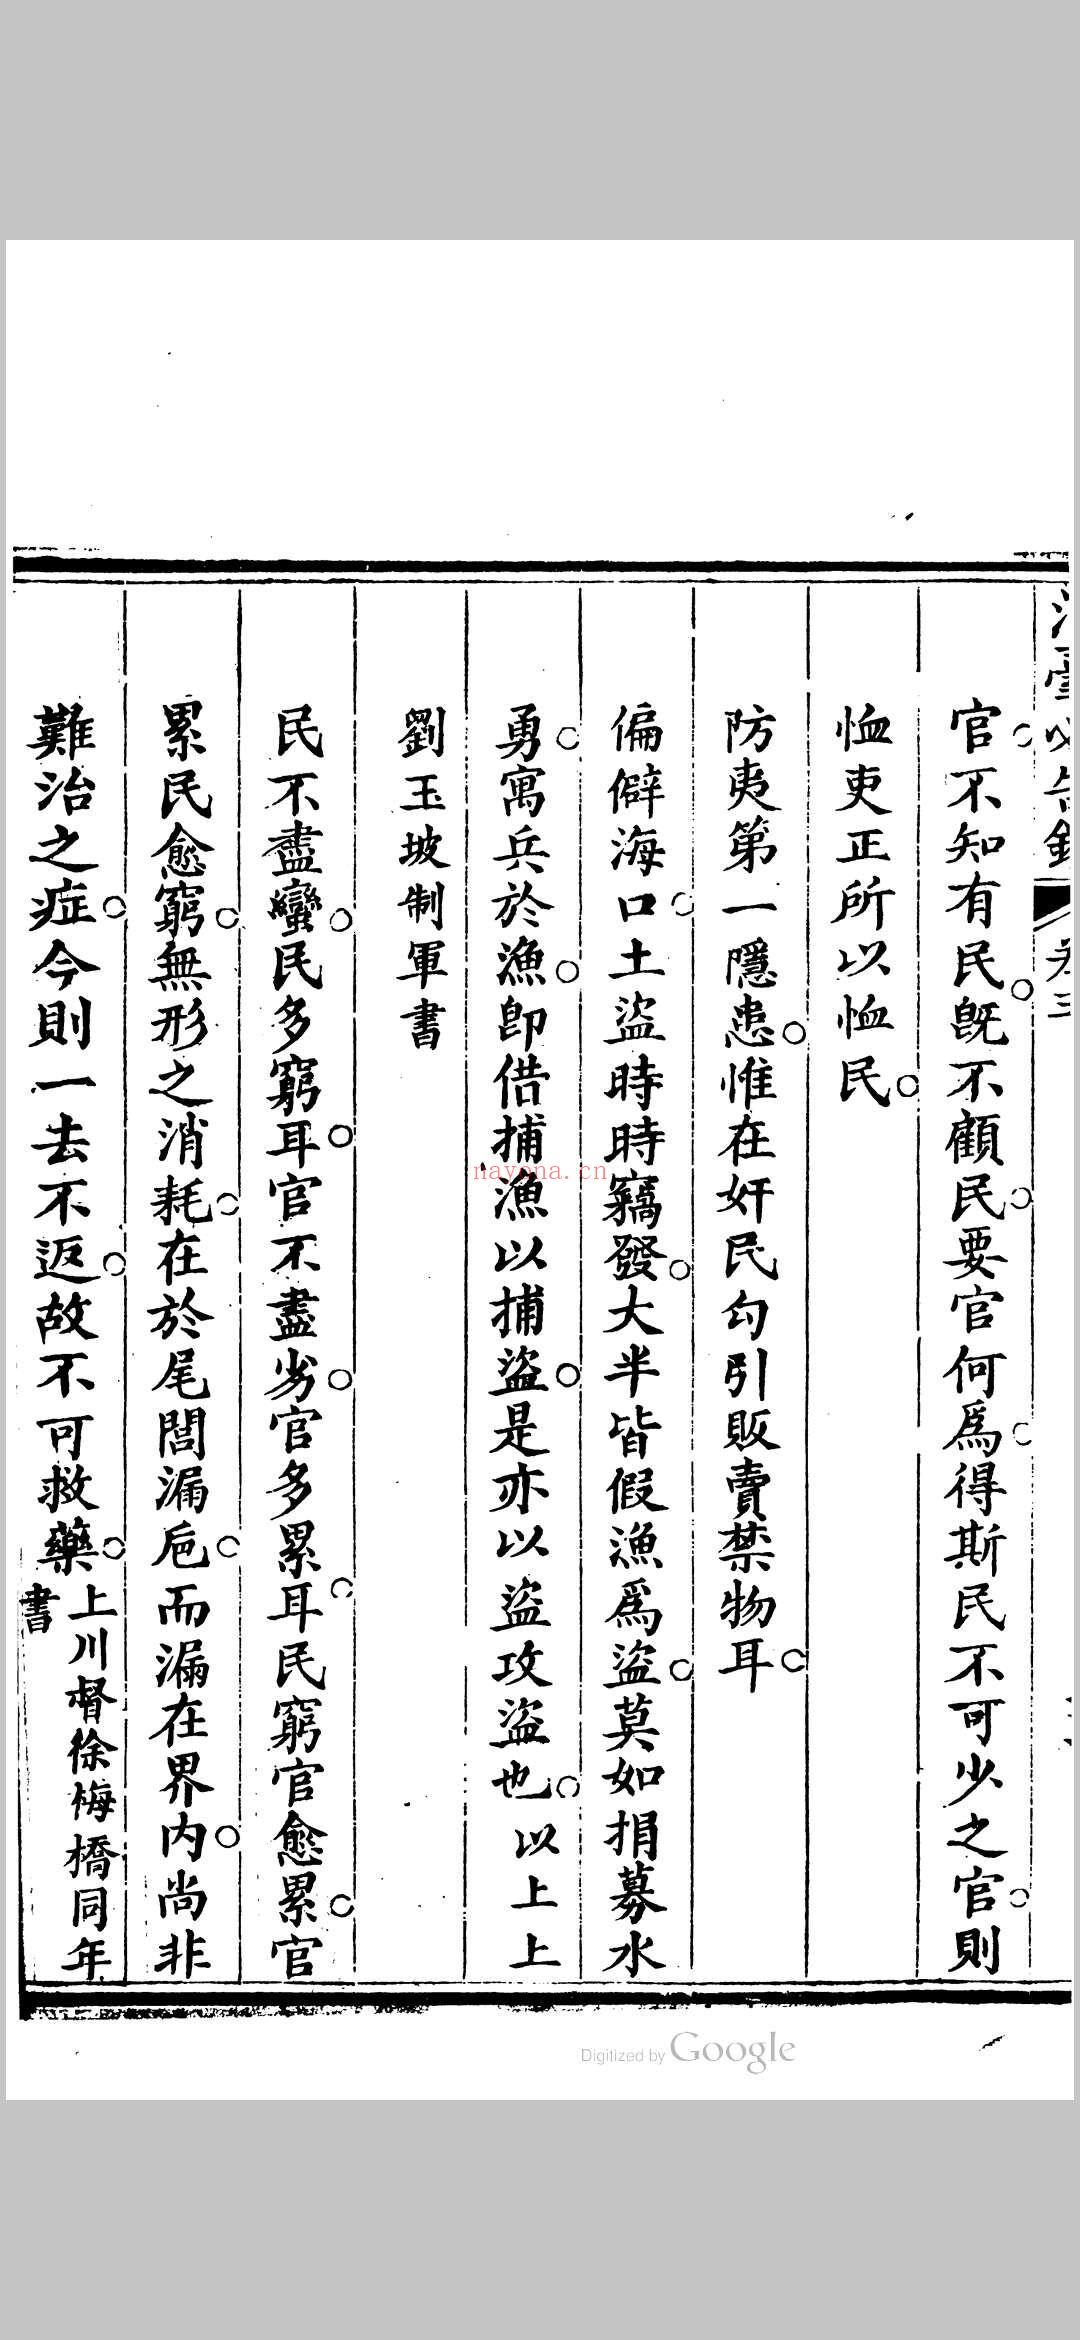 官不知有民既不顧民要官何爲得斯民不可少之官則
恤吏正所以恤民
防夷第一隱患惟在奸民勾引販賣禁物耳
偏僻海口土盜時時竊發大半皆假漁爲盜莫如捐募水
勇寓兵於漁卽借捕漁以捕盜是亦以盜攻盜也以上上
劉玉坡制軍書
民不盡蠻民多窮耳官不盡劣官多累耳民窮官愈累官
累民愈窮無形之消耗在於尾閭漏卮而漏在界內尚非
難治之症今則一去不返故不可救藥上川督徐梅橋同年
書
卷三
nayona.cn
Digitized by Google